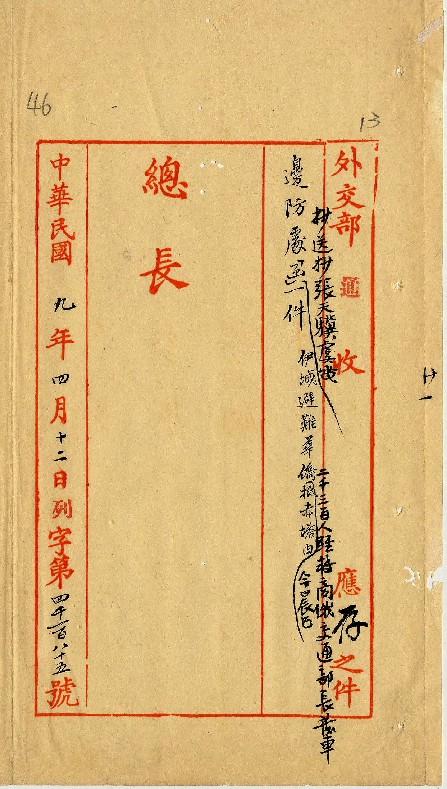 46
13
外交部 通 收 應存之件
抄送抄張天驥
二千三百人 商俄交通部長發車
邊防處函一件 伊城避難華僑抵赤塔由
總長
廿一
中華民國九年四月十二日列字第四千一百八十五號